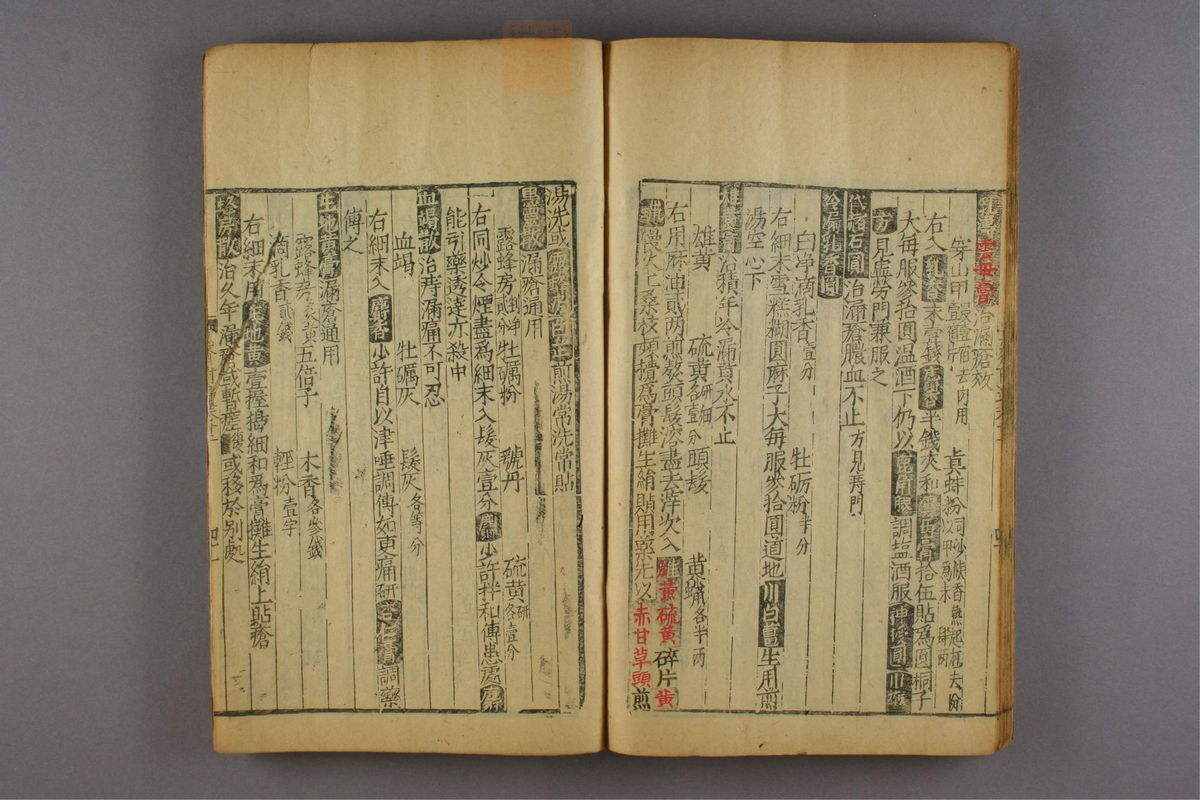 雲母膏 治漏瘡效
穿山甲 真蚌粉 同炒
右入乳香末壹錢 麝香半錢 夾和雲母膏拾伍貼為圓桐子
大每服參拾圓温酒下仍以 調塩酒服
方見虚勞門兼服之
代赭石圓 治漏瘡膿血不止 方見痔門
冷漏乳香圓
白净滴乳香 壹分 牡砺粉 半分
右細末雪糕糊圓麻子大每服參拾圓道地川白薑生用煎
湯空心下
雄黄膏 治積年冷漏黄水不止
雄黄 硫黄 研細各壹分 頭髮 黄蠟 各半两
右用麻油貳两煎熬頭髮溶盡去滓次入雄黄硫黄碎片黄
蠟隈火上桑枝頻攪為膏攤生絹貼用藥先以赤甘草頭煎
湯洗或露蜂房白芷煎湯常洗常貼
黑靈散 漏瘡通用
露蜂房 牡礪粉 硫黄 研各壹分
右同炒令煙盡為細末入髮灰壹分麝香少許拌和傅患處
能引藥透達亦殺中
血竭散 治痔漏痛不可忍
血竭 牡礪灰 髮灰 各等分
右細末入麝香少許自以津唾調傅如更痛研杏仁膏調藥
傅之
生地黄膏 漏瘡通用
露蜂房 五倍子 木香 各參錢
滴乳香 貳錢 輕粉 壹字
右細末用生地黄壹握擣細和為膏攤生絹上貼瘡
治久年漏瘡或暫瘥復或移於别處